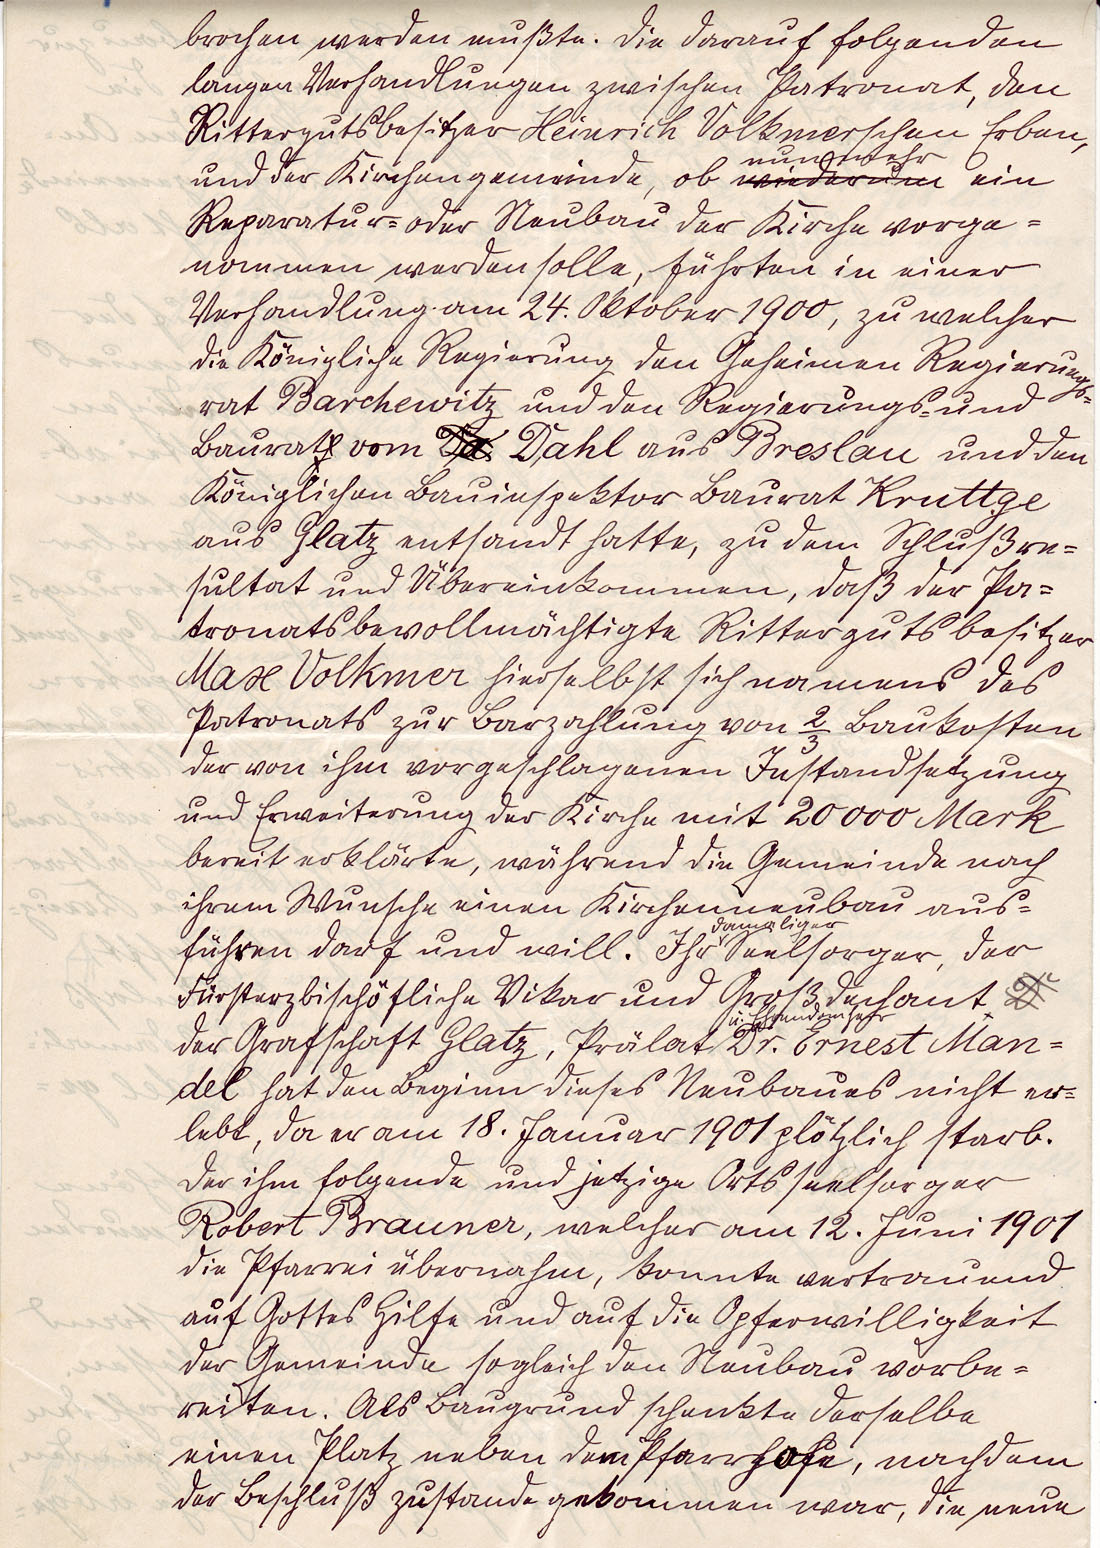 brochen werden mußte. Die darauf folgenden
langen Verhandlungen zwischen Patronat, den
Rittergutsbesitzer Heinrich Volkmerschen Erben,
nunmehr
und der Kirchengemeinde, ob wiederum ein
Reparatur- oder Neubau der Kirche vorge-
nommen werden solle, führten in einer
Verhandlung am 24. Oktober 1900, zu welcher
die Königliche Regierung den Geheimen Regierungs-
rat Barchewitz und den Regierungs- und
Baurat vom Dahl aus Breslau und den
Königlichen Bauinspektor Baurat Kruttge
aus Glatz entsandt hatte, zu dem Schlußre-
sultat und Übereinkommen, daß der Pa-
tronatsbevollmächtigte Rittergutsbesitzer
Max Volkmer hierselbst sich namens des
Patronats zur Barzahlung von 2/3 Baukosten
der von ihm vorgeschlagenen Instandsetzung
und Erweiterung der Kirche mit 20 000 Mark
bereit erklärte, während die Gemeinde nach
ihrem Wunsche einen Kirchenneubau aus-
damaliger
führen darf und will. Ihr Seelsorger, der
Fürsterzbischöfliche Vikar und Großdechant
u. Ehrendomherr
der Grafschaft Glatz, Prälat Dr. Ernest Man-
del hat den Beginn dieses Neubaues nicht er-
lebt, da er am 18. Januar 1901 plötzlich starb.
Der ihm folgende und jetzige Ortsseelsorger
Robert Brauner, welcher am 12. Juni 1901
die Pfarrei übernahm, konnte vertrauend
auf Gottes Hilfe und auf die Opferwilligkeit
der Gemeinde sogleich den Neubau vorbe-
reiten. Als Baugrund schenkte derselbe
einen Platz neben dem Pfarrhofe, nachdem
der Beschluß zustande gekommen war, die neue